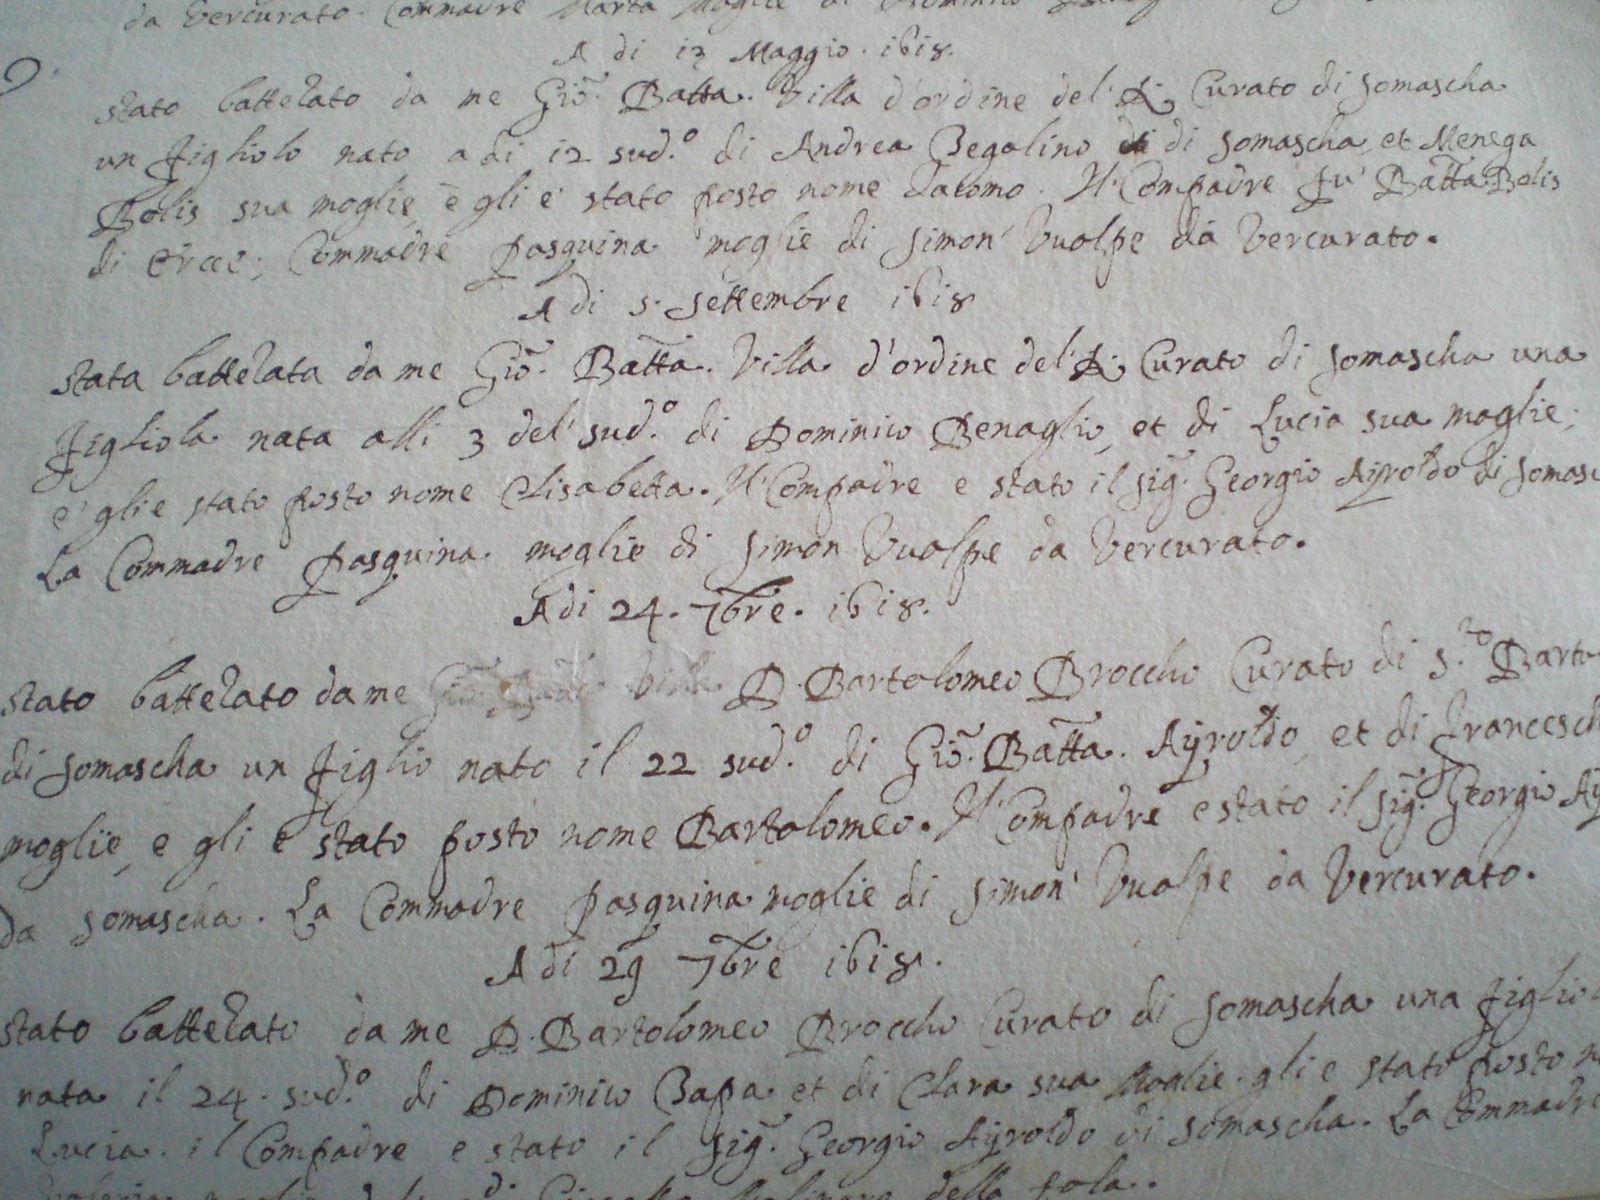 da Vercurato. Commadre Marta Moglie di Dominico
A di 13 Maggio. 1618.
stato battezato da me Gio. Batta. Villa d'ordine del' R. Curato di Somascha
un figliolo nato a di 12 sud.º di Andrea Begalino di Somascha, et Menega
Bolis sua moglie, e gli e' stato posto nome Iacomo. Il Compadre fu' Batta Bolis
di Ercce; Commadre Pasquina moglie di Simon' Vuolpe da Vercurato.
A di 5. Settembre 1618
stata battezata da me Gio. Batta. Villa d'ordine del' R. Curato di Somascha una
figliola nata alli 3 del' sud.º di Dominico Benaglio, et di Lucia sua moglie;
e' gli e stato posto nome Elisabetta. Il Compadre e stato il Sig. Georgio Ayroldo di Somasc
La Commadre Pasquina moglie di Simon Vuolpe da Vercurato.
A di 24. 7bre. 1618.
stato battezato da me D. Bartolomeo Broccho Curato di S.to Barto
di Somascha un figlio nato il 22 sud.º di Gio. Batta. Ayroldo, et di Francesch
moglie, e gli e stato posto nome Bartolomeo. Il Compadre e stato il Sig. Georgio Ay
da Somascha. La Commadre Pasquina moglie di Simon' Vuolpe da Vercurato.
A di 29 7bre 1618.
stato battezato da me D. Bartolomeo Broccho Curato di Somascha una figlio
nata il 24. sud.º di Dominico Papa et di Clara sua Moglie. gli e stato posto n
Lucia. il Compadre e stato il Sig. Georgio Ayroldo di Somascha. La Commadre
moglie Molinaro della fola.